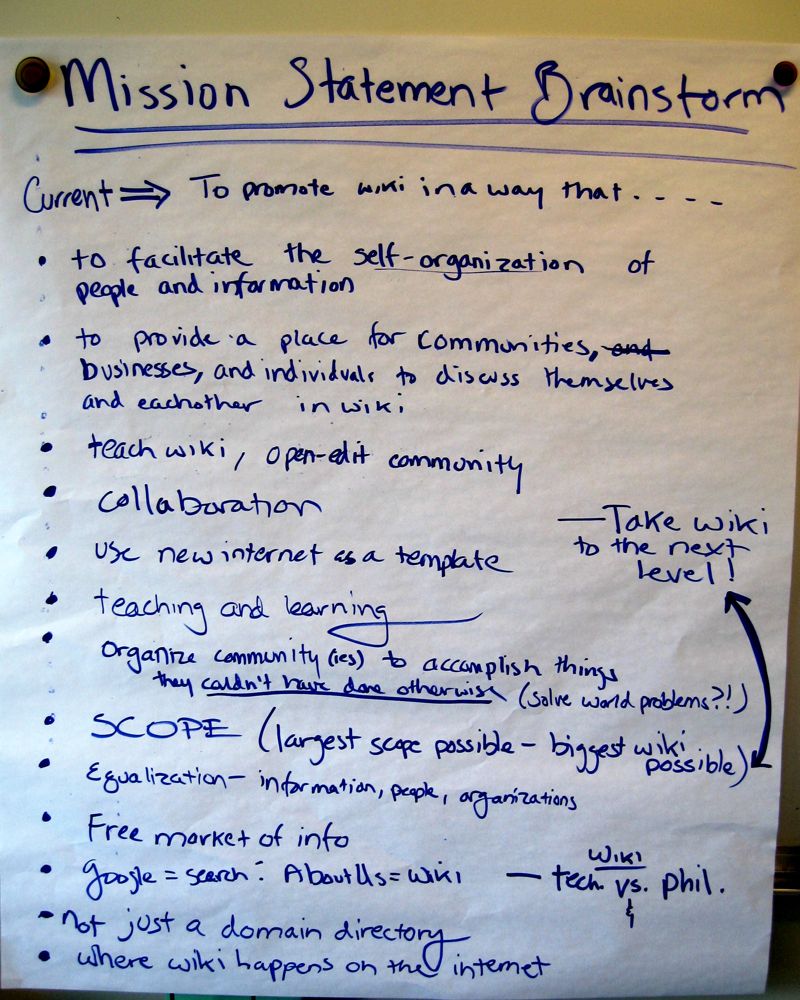 Mission Statement Brainstorm
Current ⇒ To promote wiki in a way that. - - -
• to facilitate the self-organization of
people and information
• to provide a place for communities, and
businesses, and individuals to discuss themselves
and eachother in wiki
• teach wiki, open-edit community
• collaboration
— Take wiki
to the next
level!
• use new internet as a template
• teaching and learning
• organize community (ies) to accomplish things
they couldn't have done otherwise (solve world problems?!)
• SCOPE (largest scope possible - biggest wiki
possible)
• Equalization - information, people, organizations
• Free market of info
• google = search : AboutUs = wiki
— wiki
tech. vs. phil.
&
• Not just a domain directory
• where wiki happens on the internet